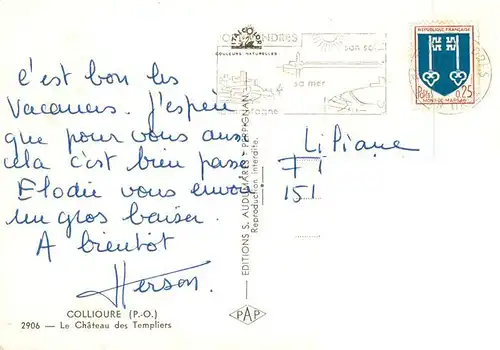 c'est bon les
Vacances. J'espère
que pour vous aussi
cela c'est bien passé
Elodie vous envoi
un gros baiser.
A bientôt
Herson.
COLLIOURE (P.-O.)
2906 - Le Château des Templiers
ITALCOLOR
COULEURS NATURELLES
EDITIONS S. AUDUMARES - PERPIGNAN
Reproduction interdite.
PAP
son soleil
sa mer
REPUBLIQUE FRANÇAISE
Postes 0,25
MONT-DE-MARSAN
Liliane
71
151